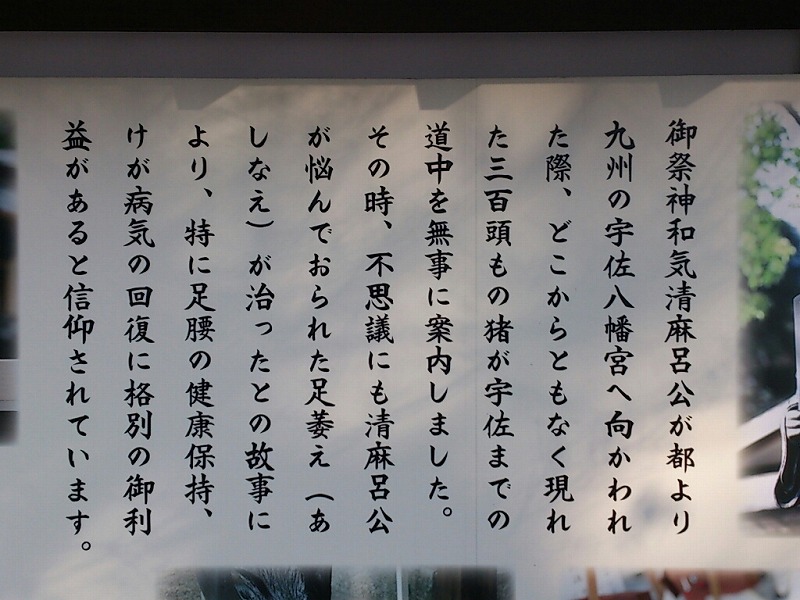 御祭神和気清麻呂公が都より
九州の宇佐八幡宮へ向かわれ
た際、どこからともなく現れ
た三百頭もの猪が宇佐までの
道中を無事に案内しました。
その時、不思議にも清麻呂公
が悩んでおられた足萎え（あ
しなえ）が治ったとの故事に
より、特に足腰の健康保持、
けが病気の回復に格別の御利
益があると信仰されています。